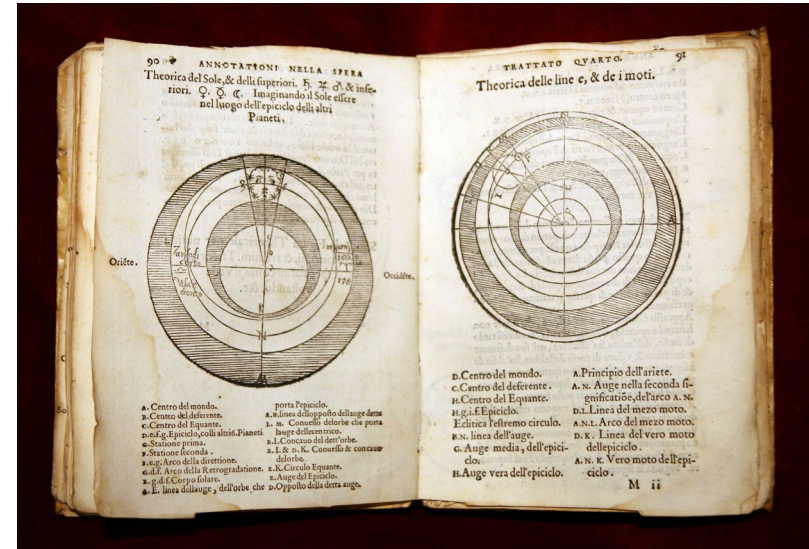 90
ANNOTATIONI NELLA SPERA
Theorica del Sole, & delli superiori. ♄. ♃. ♂. & infe-
riori. ♀. ☿. ☾. Imaginando il Sole essere
nel luogo dell'epiciclo delli altri
Pianeti.
Oriẽte.
Occidẽte.
A. Centro del mondo.
B. Centro del deferente.
C. Centro del Equante.
D.e.f.g. Epiciclo, colli altri 6. Pianeti
G. Statione prima.
F. Statione seconda.
E.e.g. Arco della direttione.
G.d.f. Arco della Retrogradatione.
E.g.d.f. Corpo solare.
A.E. linea dellauge, dell'orbe, che
porta l'epiciclo.
A.B. linea dellopposto dellauge detta
L. M. Conuesso delorbe che porta
lauge dellecentrico.
I.I. Concauo del dett'orbe.
E.I. & D.K. Conuesso & concauo
delorbe.
E.K. Circulo Equante.
E. Auge del Epiciclo.
D. Opposto della detta auge.
TRATTATO QVARTO.
91
Theorica delle linee, & de i moti.
D. Centro del mondo.
C. Centro del deferente.
H. Centro del Equante.
H.g.i.f. Epiciclo.
Eclitica l'estremo circulo.
B.N. linea dell'auge.
G. Auge media, dell'epici-
clo.
H. Auge vera dell'epiciclo.
A. Principio dell'ariete.
A. N. Auge nella seconda si-
gnificatiõe, del'arco A. N.
D.L. Linea del mezo moto.
A.N.L. Arco del mezo moto.
D. K. Linea del vero moto
dellepiciclo.
A. N. K. Vero moto dell'epi-
ciclo.
M ii